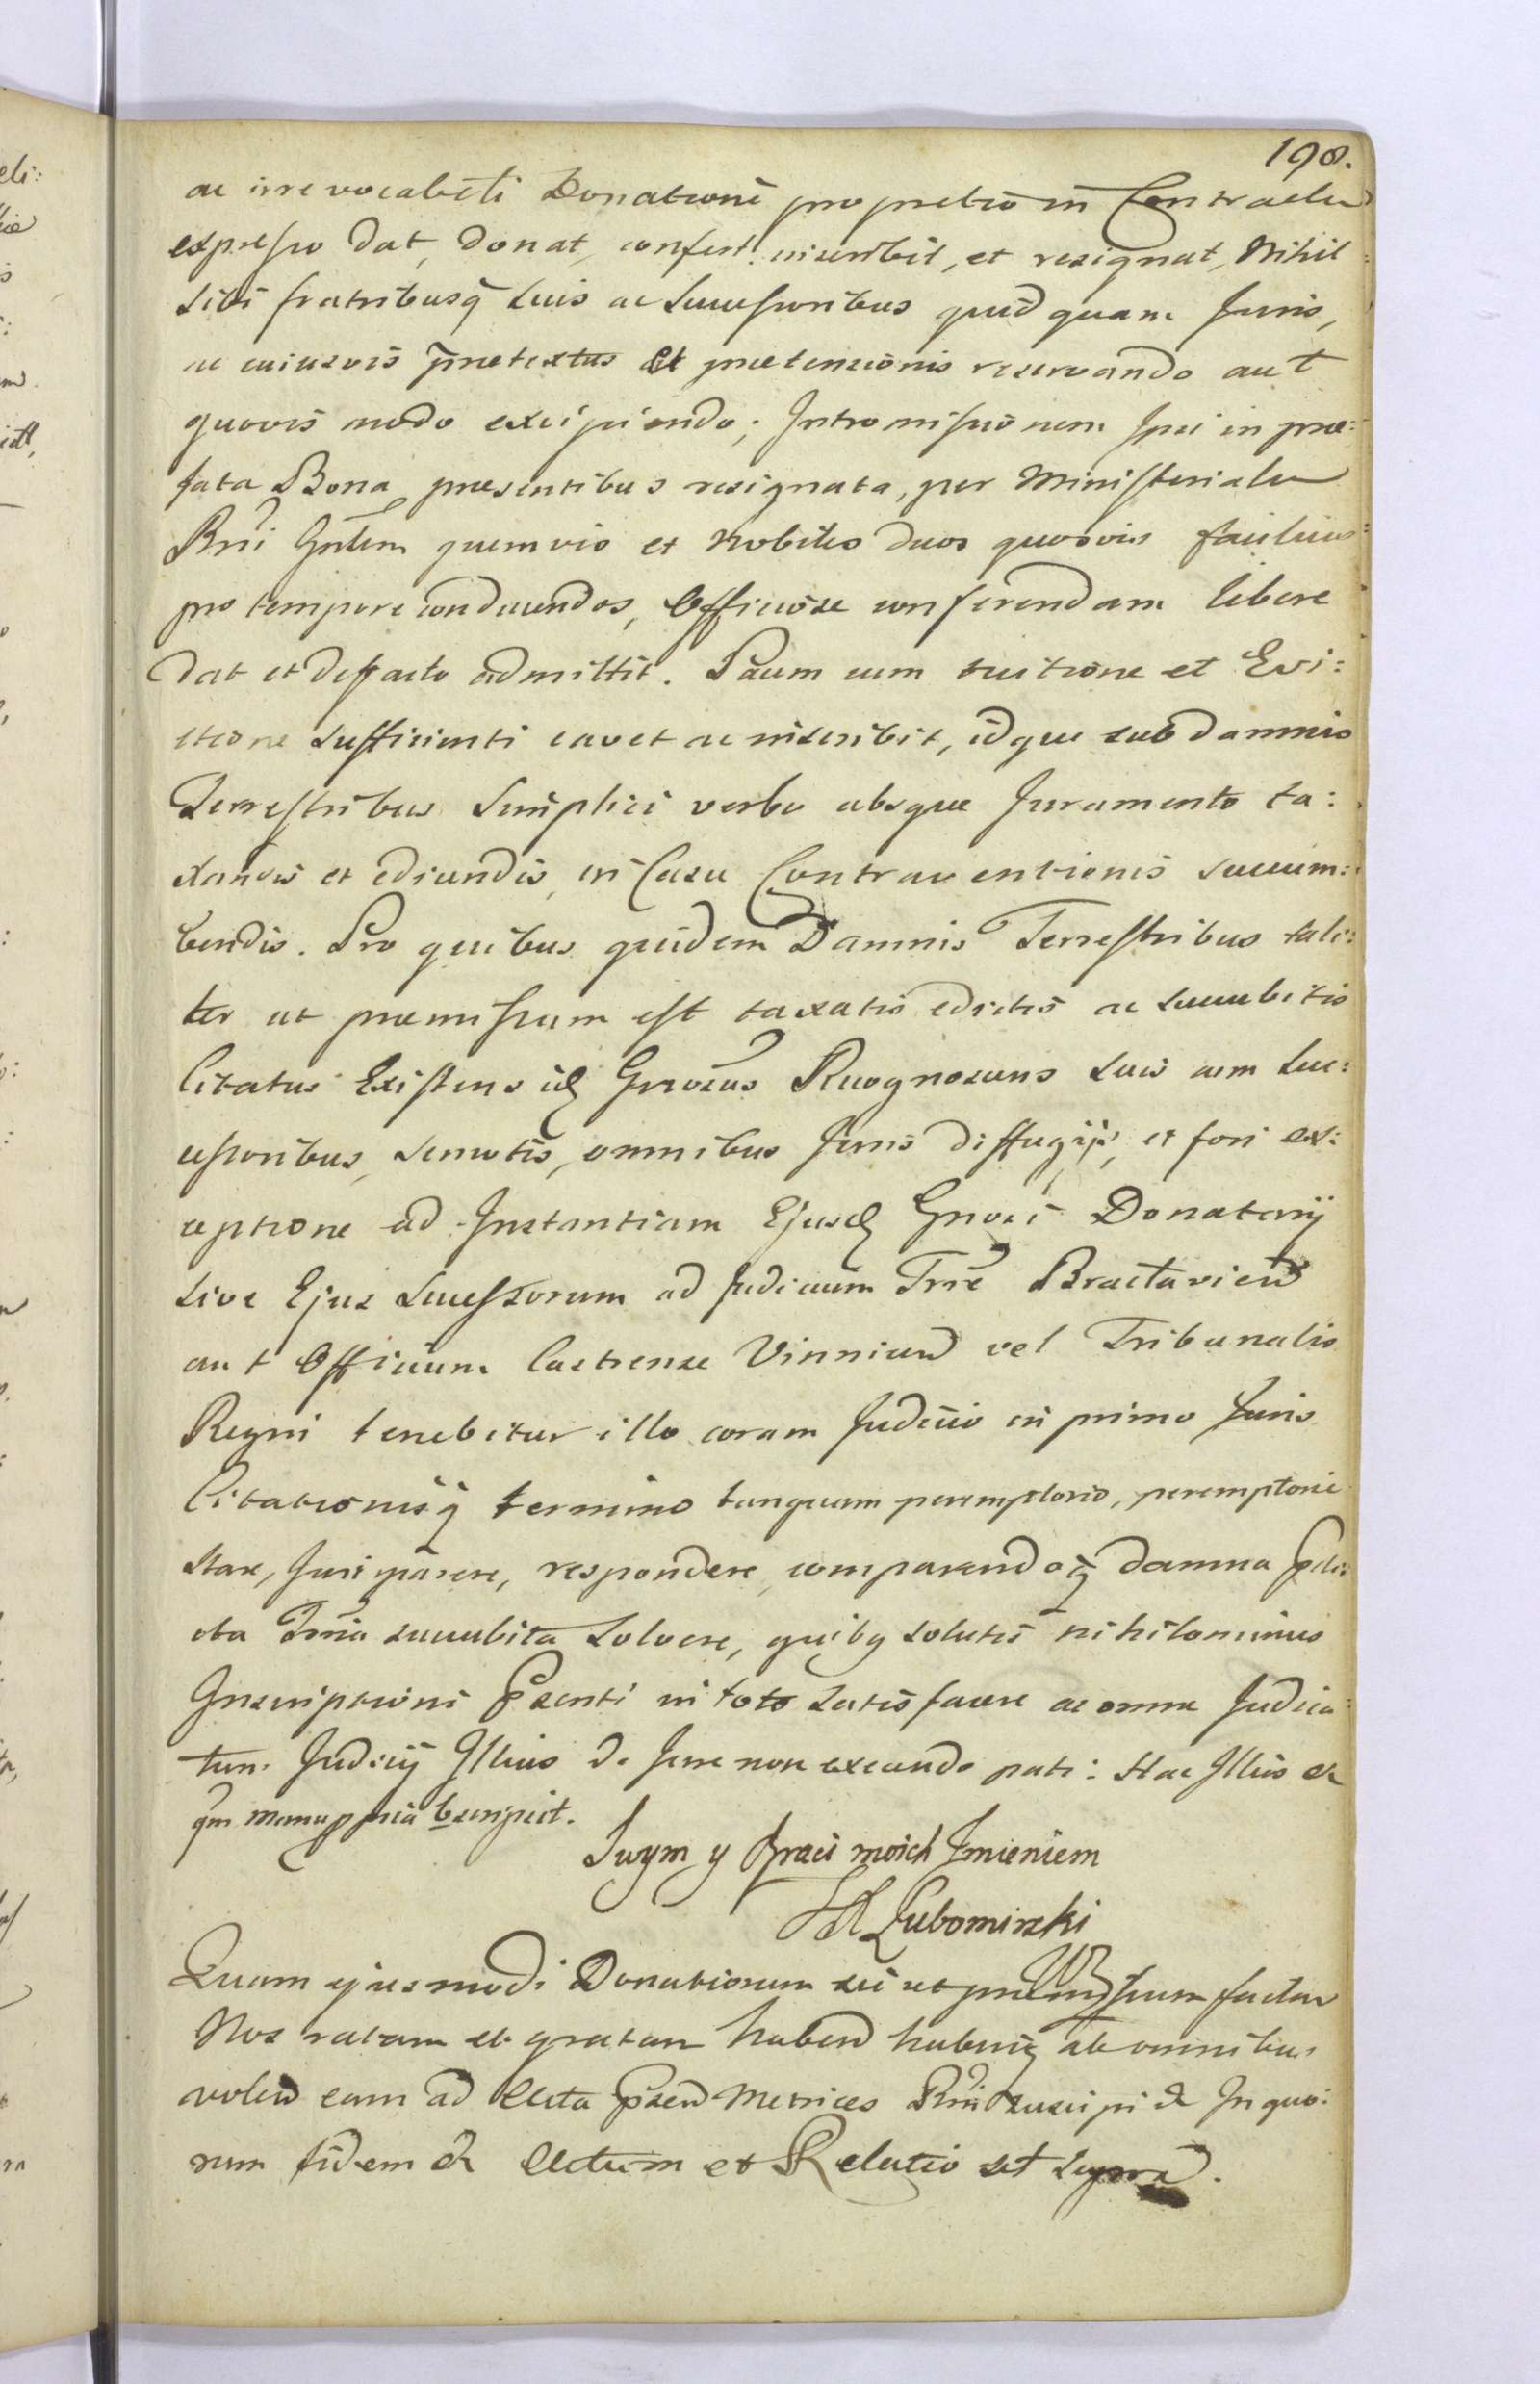 198.
ac irrevocabili Donatione pro pretio in Contractu
expresso dat, donat, confert, inscribit, et resignat, Nihil
sibi fratribusq̃ suis ac Successoribus quidquam Juris,
ac cuiusvis prætextus et prætensionis reservando aut
quovis modo excipiendo; Intromissionem Ipsi in præ:
fata Bona præsentibus resignata, per Ministerialem
Rñi Gñlem quemvis et Nobiles duos quosvis facilius
pro tempore conducendos, Officiose conferendam libere
dat et defacto admittit. Pacem cum tuitione et Evi:
ctione sufficienti cavet ac inscribit, idque sub damnis
Terrestribus Simplici verbo absque Juramento ta:
xandis et edicendis in Casu Contraventionis succum:
bendis. Pro quibus quidem Damnis Terrestribus tali:
ter ut præmissum est taxatis edictis ac succubitis
Citatus Existens id Gnrosus Recognoscens suis cum Suc:
cessoribus, semotis, omnibus Juris diffugijs, et fori ex:
ceptione ad Instantiam Ejusd Gnosi Donatarij
sive Ejus Successorum ad Judicium Trrẽ Braclavien
aut Officium Castrense Vinnicen vel Tribunalis
Regni tenebitur illo coram Judicio in primo Juris
Citationisq̃ termino tanquam peremptorio, peremptorie
stare, Juri parere, respondere, comparendoq̃ damna prædi:
cta Trria succubita Solvere, quibq solutis nihilominus
Inscriptioni Psenti in toto satisfacere ac omne Judica:
tum Judicij Illius de Jure non exeundo pati: Hac Illius et
qm manu ppria bscripsit.
Swym y Braci moich Imieniem
Lubomirski
Quam ejusmodi Donationem sic ut præmissum factam
Nos ratam et gratam haben haberiq̃ ab omnibus
volen eam ad Acta psen Metrices Rñi suscipi & In quo:
rum fidem & Actum et Relatio ut supra.